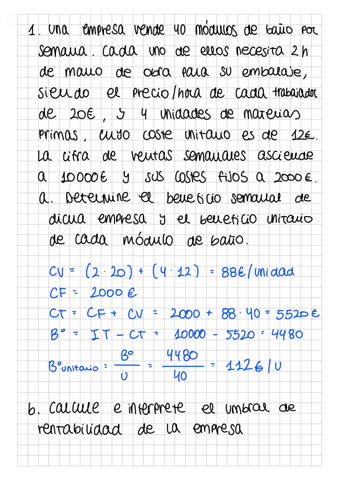 1. una empresa vende 40 módulos de baño por
semana. Cada uno de ellos necesita 2h
de mano de obra para su embalaje,
siendo el precio/hora de cada trabajador
de 20€, y 4 unidades de materias
primas, cuyo coste unitario es de 12€.
La cifra de ventas semanales asciende
a 10000€ y sus costes fijos a 2000€.
a. Determine el beneficio semanal de
dicha empresa y el beneficio unitario
de cada módulo de baño.
CV = (2·20) + (4·12) = 88€/unidad
CF = 2000€
CT = CF + CV = 2000 + 88·40 = 5520€
Bº = IT - CT = 10000 - 5520 = 4480
Bºunitario = Bº/U = 4480/40 = 112€/U
b. Calcule e interprete el umbral de
rentabilidad de la empresa